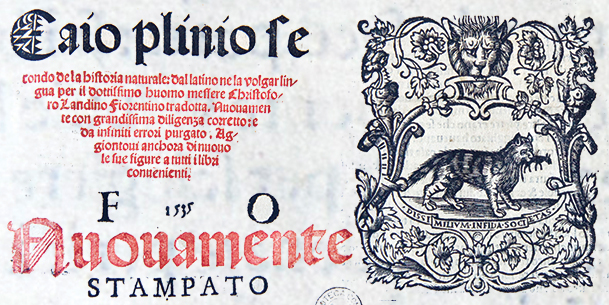 Caio plinio se
condo de la historia naturale: dal latino ne la volgar lin
gua per il dottissimo huomo messere Christofo-
ro Landino Fiorentino tradotta. Nuouamen
te con grandissima diligenza corretto: e
da infiniti errori purgato. Ag,
giontoui anchora di nuouo
le sue figure a tutti i libri
conuenienti.
F 1535 O
Nuouamente
STAMPATO
DISSI MILIVM·INFIDA·SOC IETAS